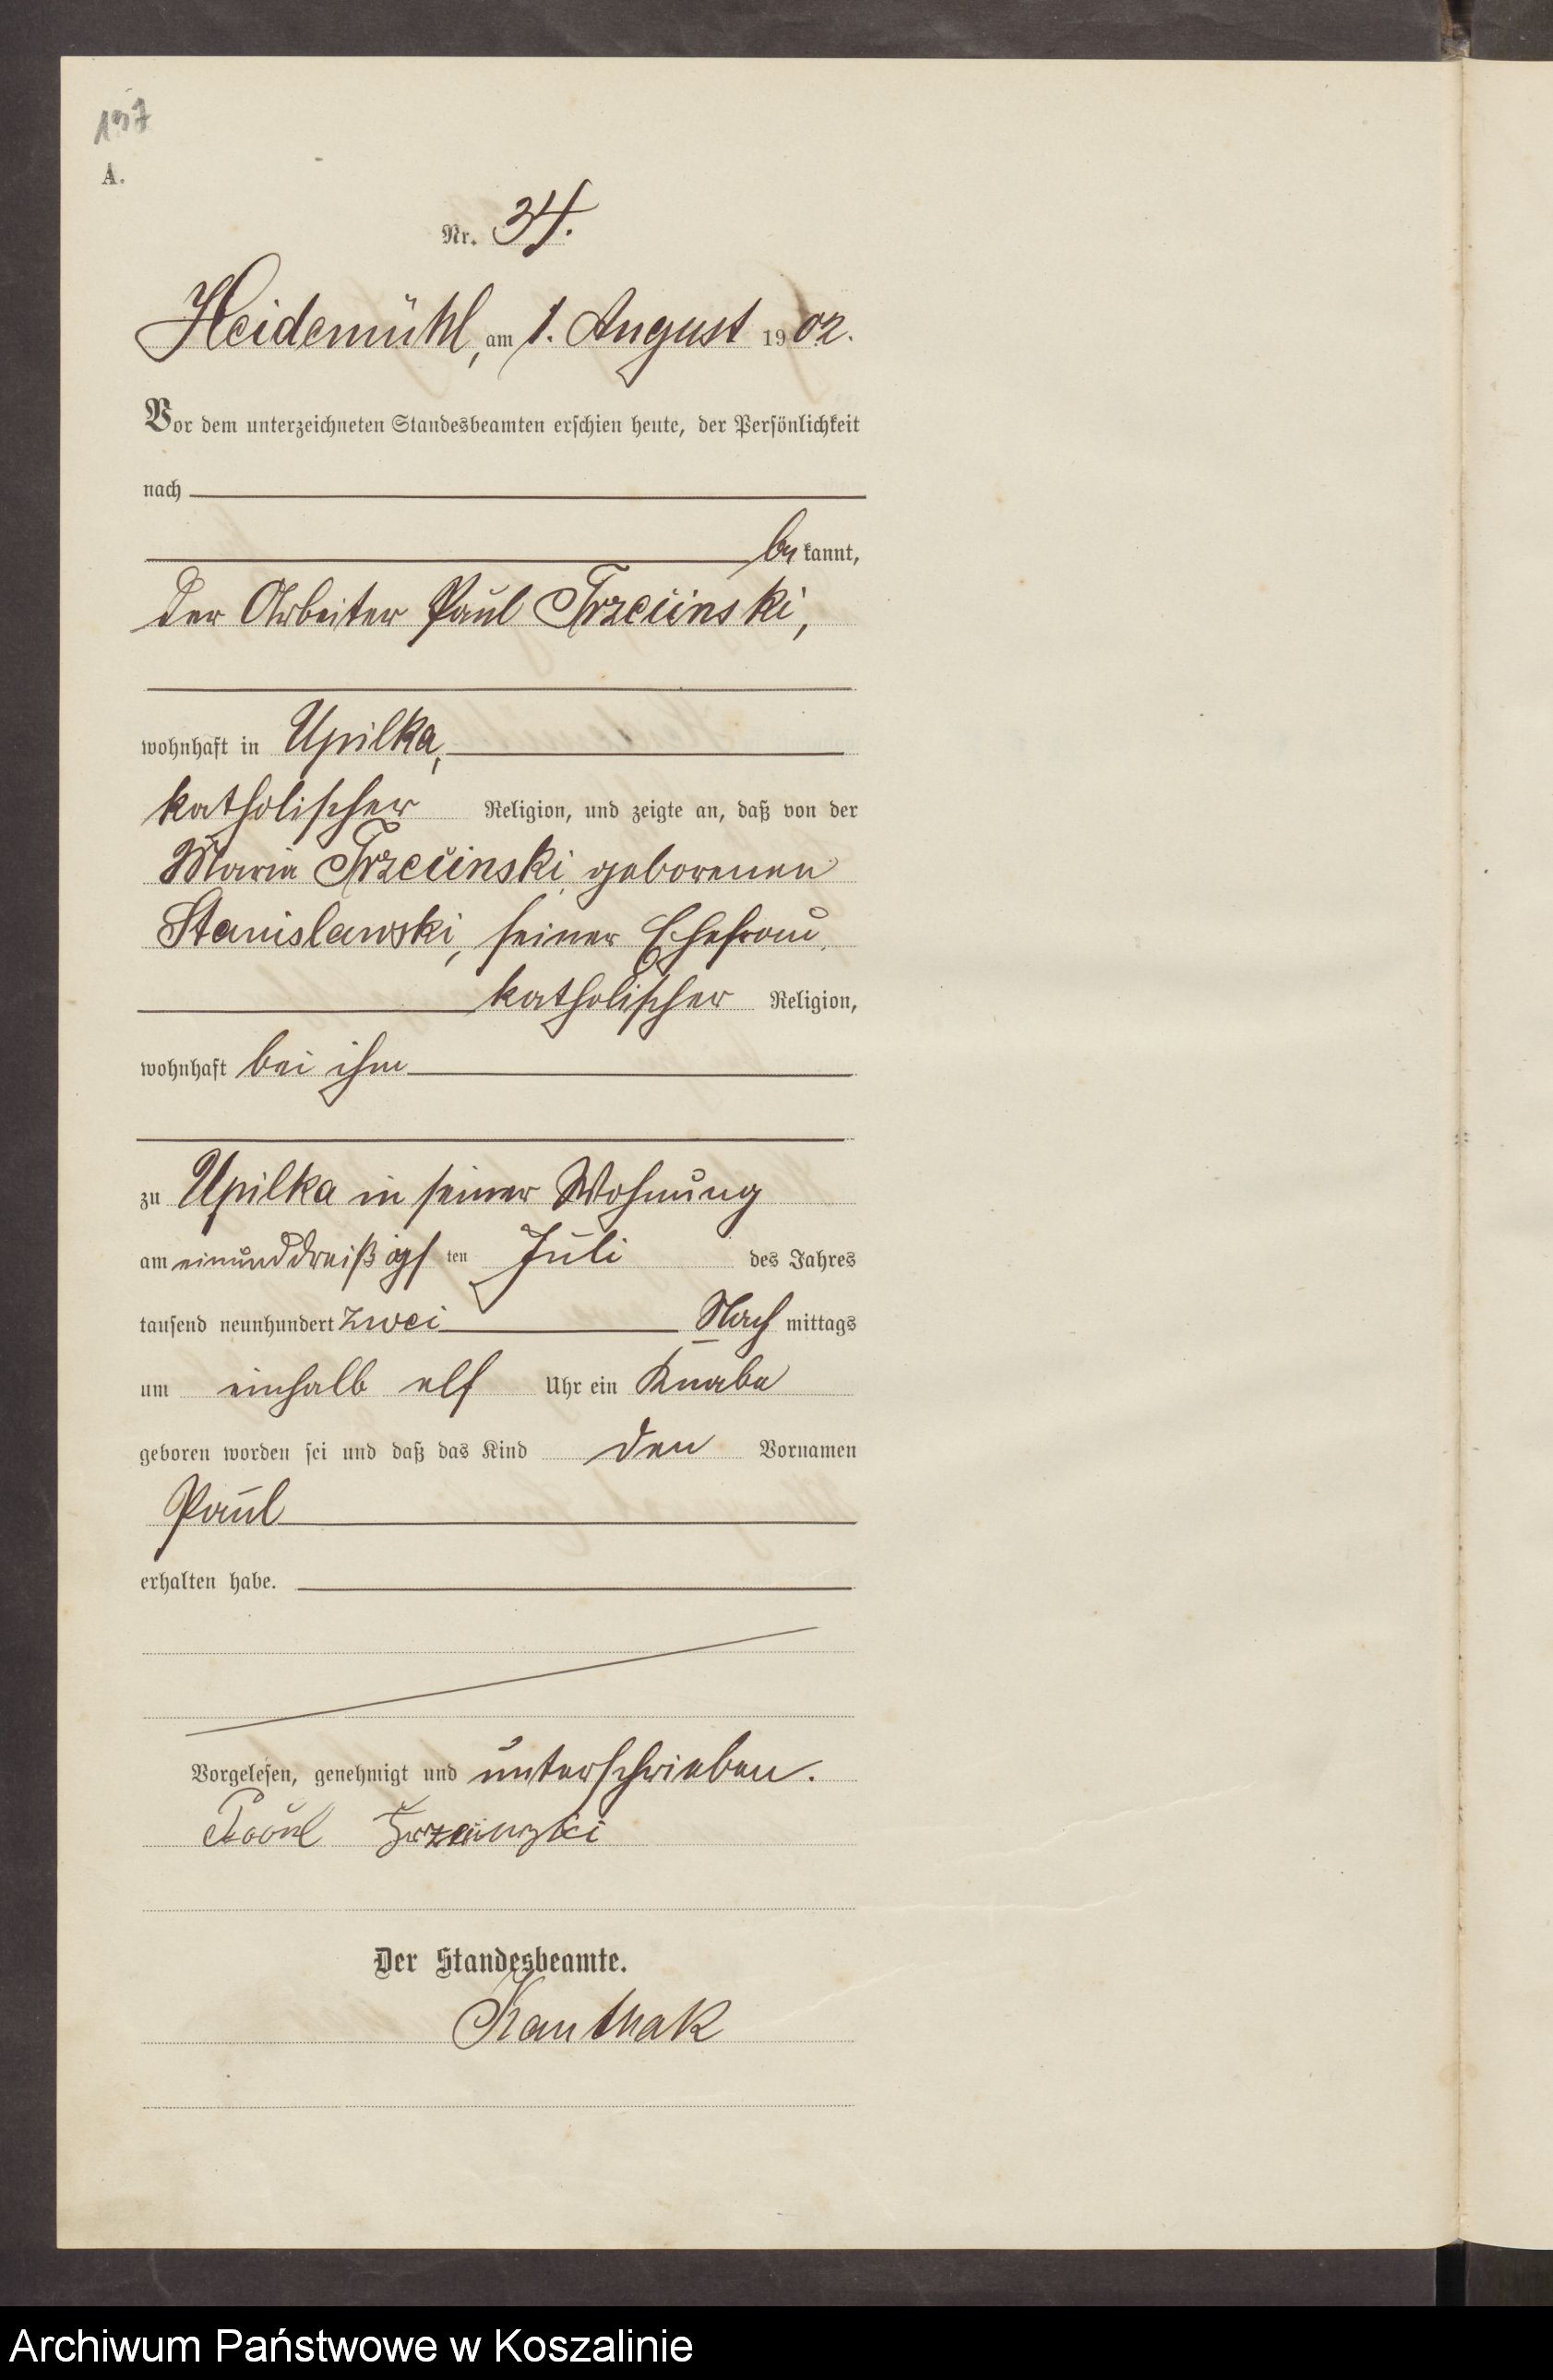 197
A.
Nr. 34.
Heidemühl, am 1. August 1902.
Vor dem unterzeichneten Standesbeamten erschien heute, der Persönlichkeit
nach
be kannt,
der Arbeiter Paul Trzeciinski,
wohnhaft in Upilka,
katholischer Religion, und zeigte an, daß von der
Maria Trzeciinski geborenen
Stanislawski, seiner Ehefrau,
katholischer Religion,
wohnhaft bei ihm
zu Upilka in seiner Wohnung
am einunddreißigs ten Juli des Jahres
tausend neunhundert zwei Nach mittags
um einhalb elf Uhr ein Knabe
geboren worden sei und daß das Kind den Vornamen
Paul
erhalten habe.
Vorgelesen, genehmigt und unterschrieben.
Paul
Der Standesbeamte.
Kanthak
Archiwum Państwowe w Koszalinie